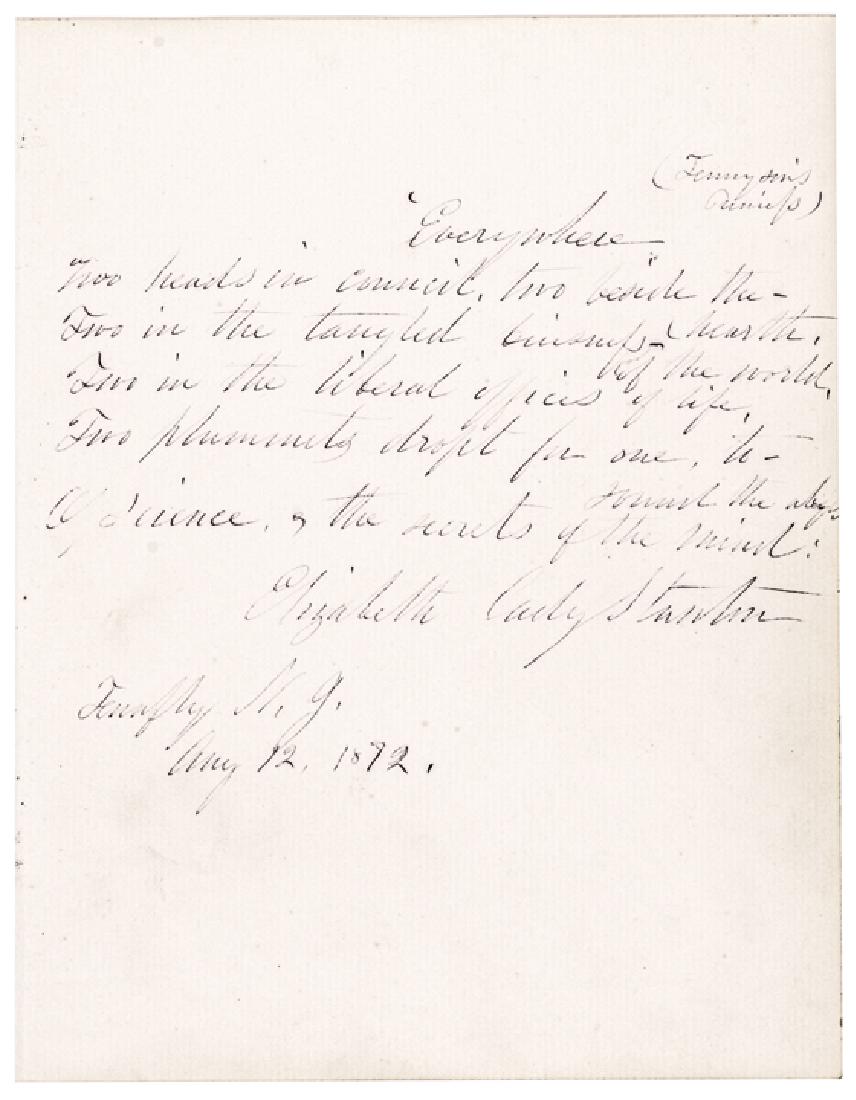 (Tennyson's
Princess)
"Everywhere
Two heads in council, two beside the-
Two in the tangled business- (hearth,
(of the world,
Two in the liberal offices of life,
Two plummets dropt for one, to-
sound the abyss
Of science, & the secrets of the mind:
Elizabeth Cady Stanton
Tenafly N. J.
Aug 12, 1872.